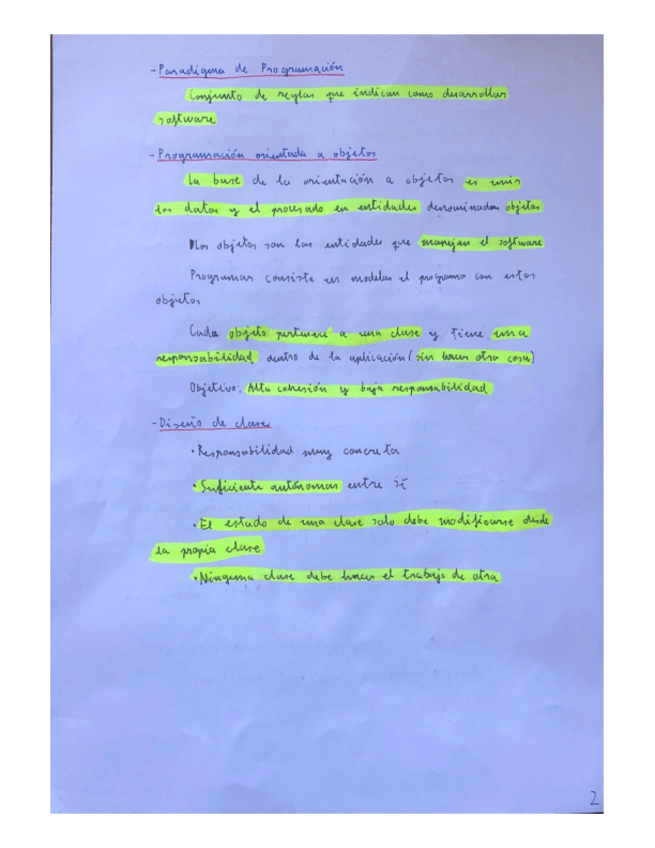 - Paradigma de Programación
Conjunto de reglas que indican como desarrollar
software
- Programación orientada a objetos
La base de la orientación a objetos es unir
los datos y el procesado en entidades denominadas objetos
Los objetos son las entidades que manejan el software
Programar consiste en modelar el programa con estos
objetos
Cada objeto pertenece a una clase y tiene una
responsabilidad dentro de la aplicación (sin hacer otra cosa)
Objetivo: Alta cohesión y baja responsabilidad
- Diseño de clase
• Responsabilidad muy concreta
• Suficiente autónomas entre sí
• El estado de una clase solo debe modificarse desde
la propia clase
• Ninguna clase debe hacer el trabajo de otra
2